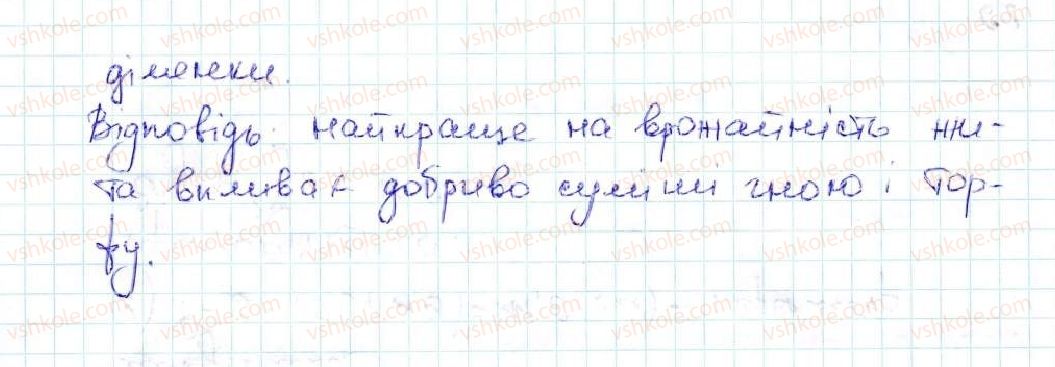 ділянки.
Відповідь: найкраще на врожайність жи-
та впливає добриво суміші гною і тор-
фу.